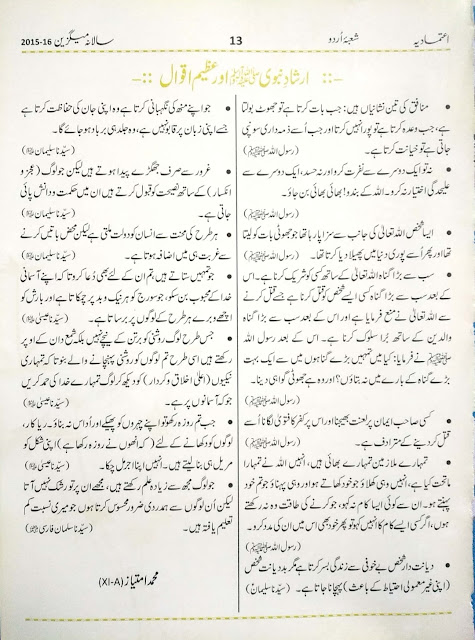 اعتمادیہ
شعبۂ اُردو
13
سالانہ میگزین 16-2015
-:: ارشادِ نبوی ﷺ اور عظیم اقوال ::-
• منافق کی تین نشانیاں ہیں: جب بات کرتا ہے تو جھوٹ بولتا
ہے، جب وعدہ کرتا ہے تو پورا نہیں کرتا اور جب اُسے ذمہ داری سونپی
جاتی ہے تو خیانت کرتا ہے۔ (رسول اللہ ﷺ)
• نہ تو ایک دوسرے سے نفرت کرو اور نہ حسد، ایک دوسرے سے
علیٰحدگی اختیار نہ کرو۔ اللہ کے بندو! بھائی بھائی بن جاؤ۔
(رسول اللہ ﷺ)
• ایسا شخص اللہ تعالیٰ کی جانب سے سزا پا رہا تھا جو جھوٹی بات کو لیتا
تھا اور پھر اُسے پوری دنیا میں پھیلا دیا کرتا تھا۔ (رسول اللہ ﷺ)
• سب سے بڑا گناہ اللہ تعالیٰ کے ساتھ کسی کو شریک کرنا ہے۔ اس
کے بعد سب سے بڑا گناہ کسی ایسے شخص کو قتل کرنا ہے جسے قتل کرنے
سے اللہ تعالیٰ نے منع فرمایا ہے اور اس کے بعد سب سے بڑا گناہ
والدین کے ساتھ بُرا سلوک کرنا ہے۔ اس کے بعد رسول اللہ
ﷺ نے فرمایا: کیا میں تمہیں بڑے گناہوں میں سے ایک بہت
بڑے گناہ کے بارے میں نہ بتاؤں؟ اور وہ ہے جھوٹی گواہی دینا۔
(رسول اللہ ﷺ)
• کسی صاحبِ ایمان پر لعنت بھیجنا اور اس پر کفر کا فتویٰ لگانا اُسے
قتل کر دینے کے مترادف ہے۔ (رسول اللہ ﷺ)
• تمہارے ملازمین تمہارے بھائی ہیں، انہیں اللہ نے تمہارا
ماتحت کیا ہے، انہیں وہی کھلاؤ جو خود کھاتے ہو اور وہی پہناؤ جو تم خود
پہنتے ہو۔ ان سے کوئی ایسا کام نہ کہو، جو کرنے کی طاقت وہ نہ رکھتے
ہوں، اگر کسی ایسے کام کا انہیں کہو تو پھر خود بھی اس میں ان کی مدد کرو۔
(رسول اللہ ﷺ)
• دیانت دار شخص بے خوفی سے زندگی بسر کرتا ہے مگر بددیانت شخص
(اپنی غیر معمولی احتیاط کے باعث) پہچانا جاتا ہے۔ (سیّدنا سلیمانؑ)
• جو اپنے منھ کی نگہبانی کرتا ہے وہ اپنی جان کی حفاظت کرتا ہے
جسے اپنی زبان پر قابو نہیں ہے، وہ جلد ہی برباد ہو جائے گا۔
(سیّدنا سلیمانؑ)
• غرور سے صرف جھگڑے پیدا ہوتے ہیں لیکن جو لوگ (عجز و
انکسار) کے ساتھ نصیحت کو قبول کرتے ہیں ان میں حکمت و دانش پائی
جاتی ہے۔ (سیّدنا سلیمانؑ)
• ہر طرح کی محنت سے انسان کو دولت ملتی ہے لیکن محض باتیں کرنے
سے غربت ہی میں اضافہ ہوتا ہے۔ (سیّدنا سلیمانؑ)
• جو تمہیں ستاتے ہیں تم ان کے لئے بھی دُعا کرو تا کہ اپنے آسمانی
خدا کے محبوب بن سکو، جو سورج کو ہر نیک و بد پر چمکاتا ہے اور بارش کو
اچھے و برے ہر طرح کے لوگوں پر برساتا ہے۔ (سیّدنا عیسیٰؑ)
• جس طرح لوگ روشنی کو برتن کے نیچے نہیں بلکہ شمع دان کے اوپر
رکھتے ہیں اسی طرح تم لوگوں کو روشنی پہنچانے والے بنو تا کہ تمہاری
نیکیوں (اعلیٰ اخلاق و کردار) کو دیکھ کر لوگ تمہارے خدا کی حمد کریں
جو کہ آسمانوں پر ہے۔ (سیّدنا عیسیٰؑ)
• جب تم روزہ رکھو تو اپنے چہروں کو پھیکے اور اُداس نہ بناؤ۔ ریاکار،
لوگوں کو دکھانے کے لئے (کہ انھوں نے روزہ رکھا ہے) اپنی شکل کو
مریل ہی بنا لیتے ہیں۔ انہیں اپنا اجر مل چکا۔ (سیّدنا عیسیٰؑ)
• جو لوگ مجھ سے زیادہ علم رکھتے ہیں، مجھے ان پر تو رشک نہیں آتا
لیکن اُن لوگوں سے ہمدردی ضرور محسوس کرتا ہوں جو میری نسبت کم
تعلیم یافتہ ہیں۔ (سیّدنا سلمان فارسیؓ)
محمد امتیاز (XI-A)